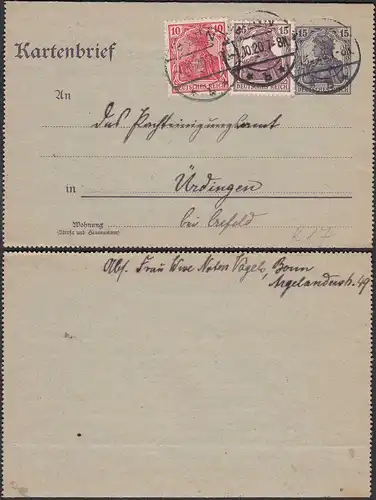 10 15 15
DEUTSCHES REICH DEUTSCHES REICH
10.20
Kartenbrief
An
das Pachteinigungsamt
in Ürdingen
bei Crefeld
Wohnung
(Straße und Hausnummer)
Abs. Frau Wwe Notar Vogels, Bonn
Argelanderstr. 49